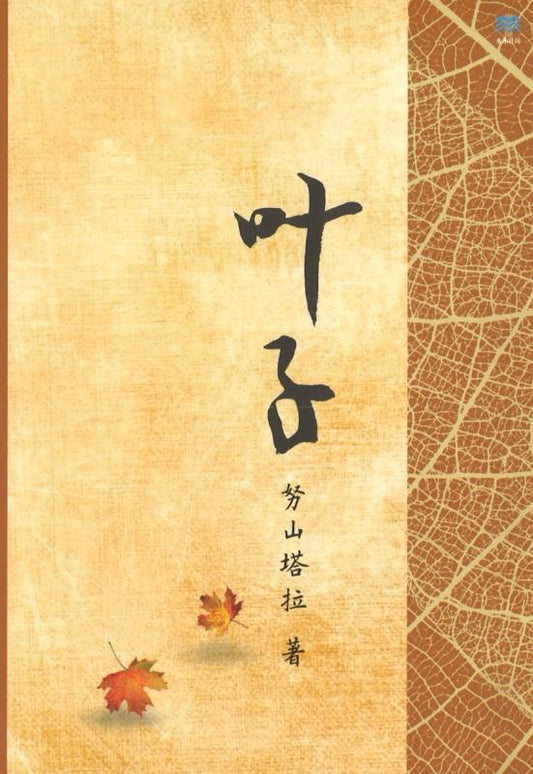 叶子
努山塔拉 著